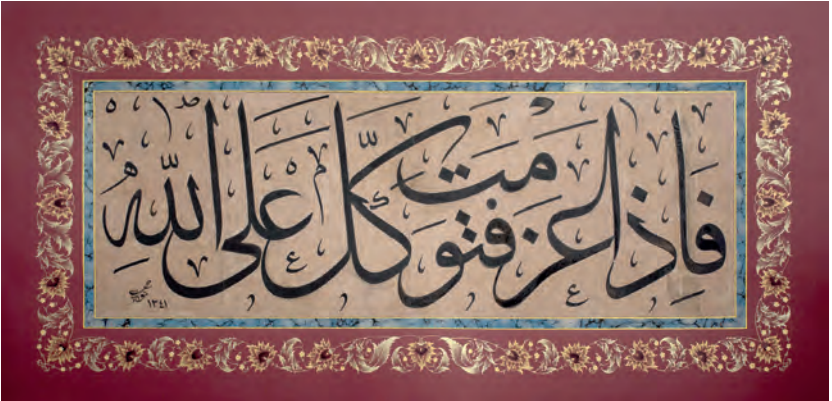 فَاِذَا عَزَمْتَ فَتَوَكَّلْ عَلَى اللّٰهِ
١٣٤١